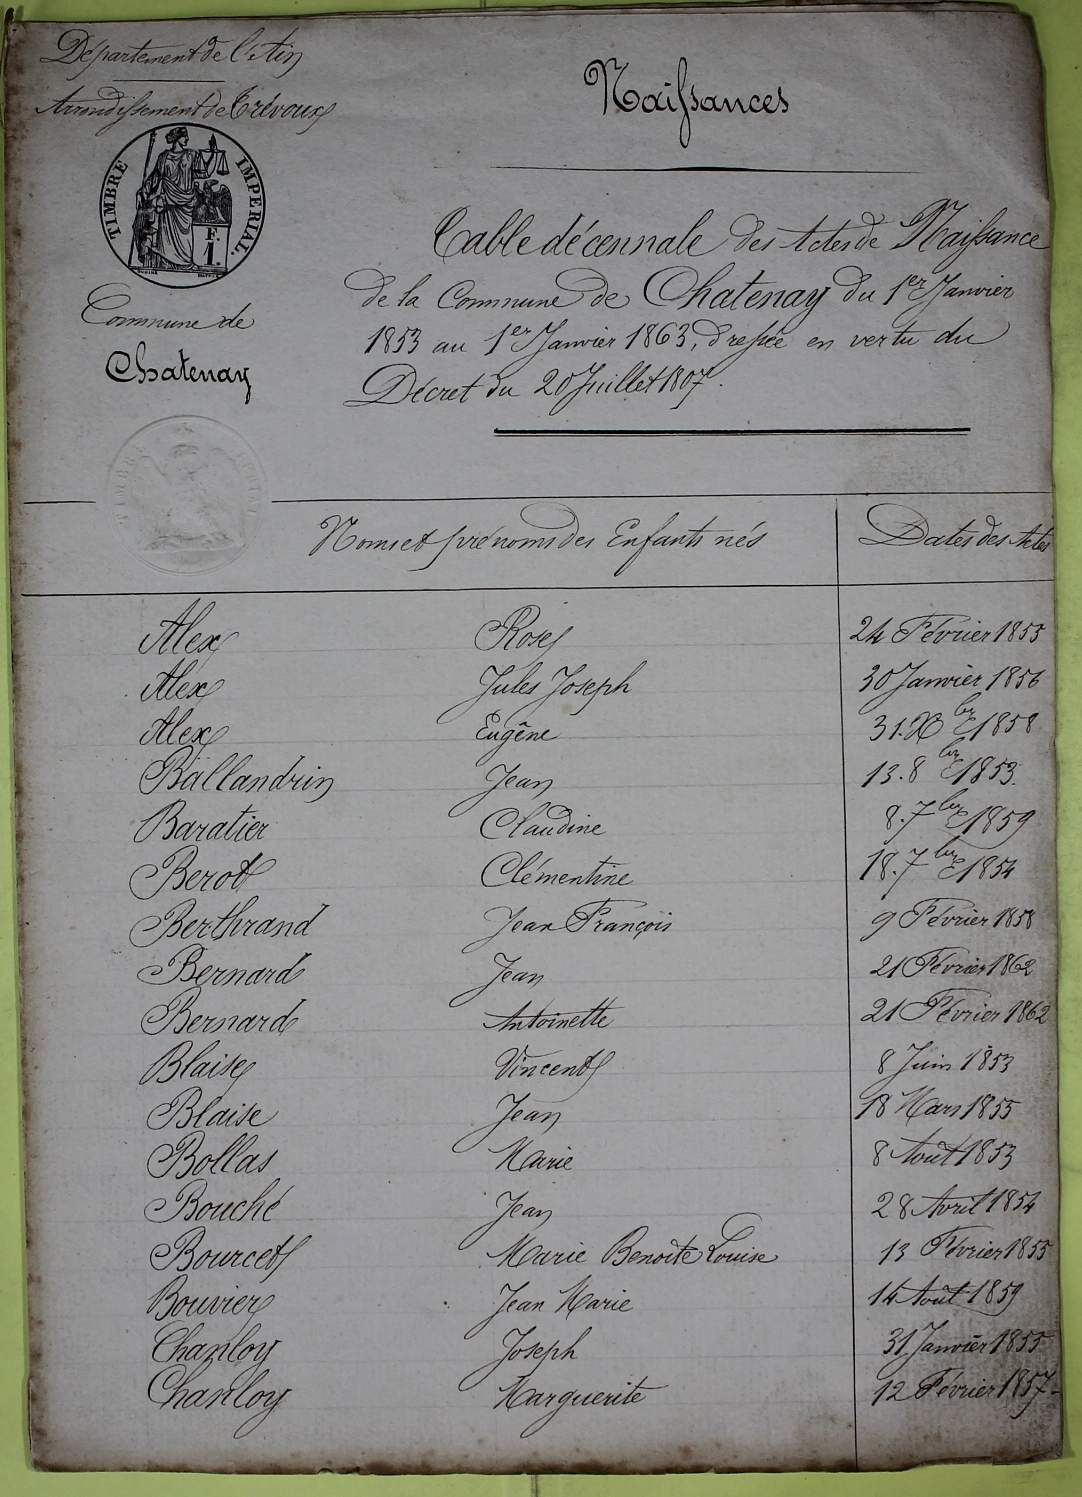 Département de l'Ain
Arrondissement de Trévoux
TIMBRE IMPERIAL.
F.
1.
Commune de
Chatenay
Naissances
Table décennale des Actes de Naissance
de la Commune de Chatenay du 1er Janvier
1853 au 1er Janvier 1863, dressée en vertu du
Décret du 20 Juillet 1807.
Noms et prénoms des Enfants nés Dates des Actes
Alex Rose 24 Février 1855
Alex Jules Joseph 30 Janvier 1856
Alex Eugène 31. Xbre 1858
Ballandrin Jean 13. 8bre 1853.
Baratier Claudine 8. 7bre 1859
Berot Clémentine 18. 7bre 1854
Berthrand Jean François 9 Février 1858
Bernard Jean 21 Février 1862
Bernard Antoinette 21 Février 1862
Blaise Vincent 8 Juin 1853
Blaise Jean 18 Mars 1855
Bollas Marie 8 Août 1853
Bouché Jean 28 Avril 1854
Bourcet Marie Benoîte Louise 13 Février 1855
Bouvier Jean Marie 14 Août 1859
Chanloy Joseph 31 Janvier 1855
Chanloy Marguerite 12 Février 1857